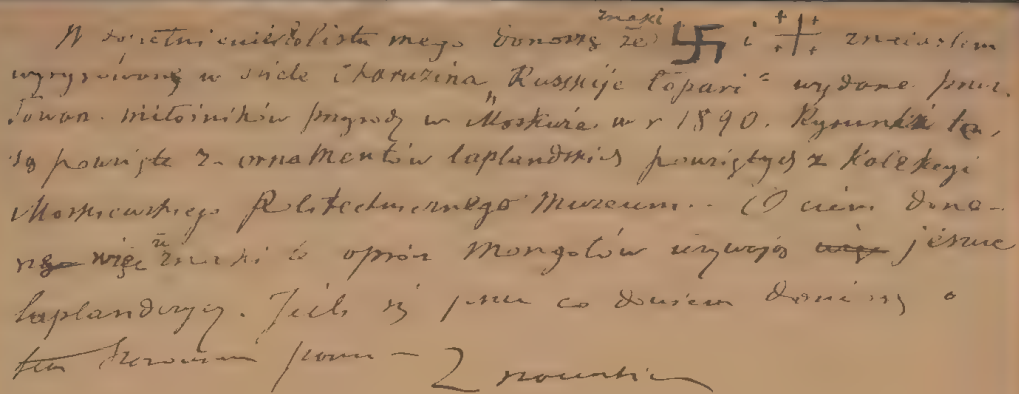 W dopełnieniu listu mego donoszę że znaki 卐 i znalazłem
wyrysowane w dziele Charuzina „Russkije Łopari“ wydane przez
Towarz. miłośników przyrody w Moskwie w r 1890. Rysunki te,
są powzięte z ornamentów laplandskich powziętych z Kolekcyi
Moskiewskiego Politechnicznego Muzeum.. O czem dono-
więc że znaki te oprócz Mongołów używają jeszcze
laplandczycy. Jeśli się co dowiem doniosę o
tem